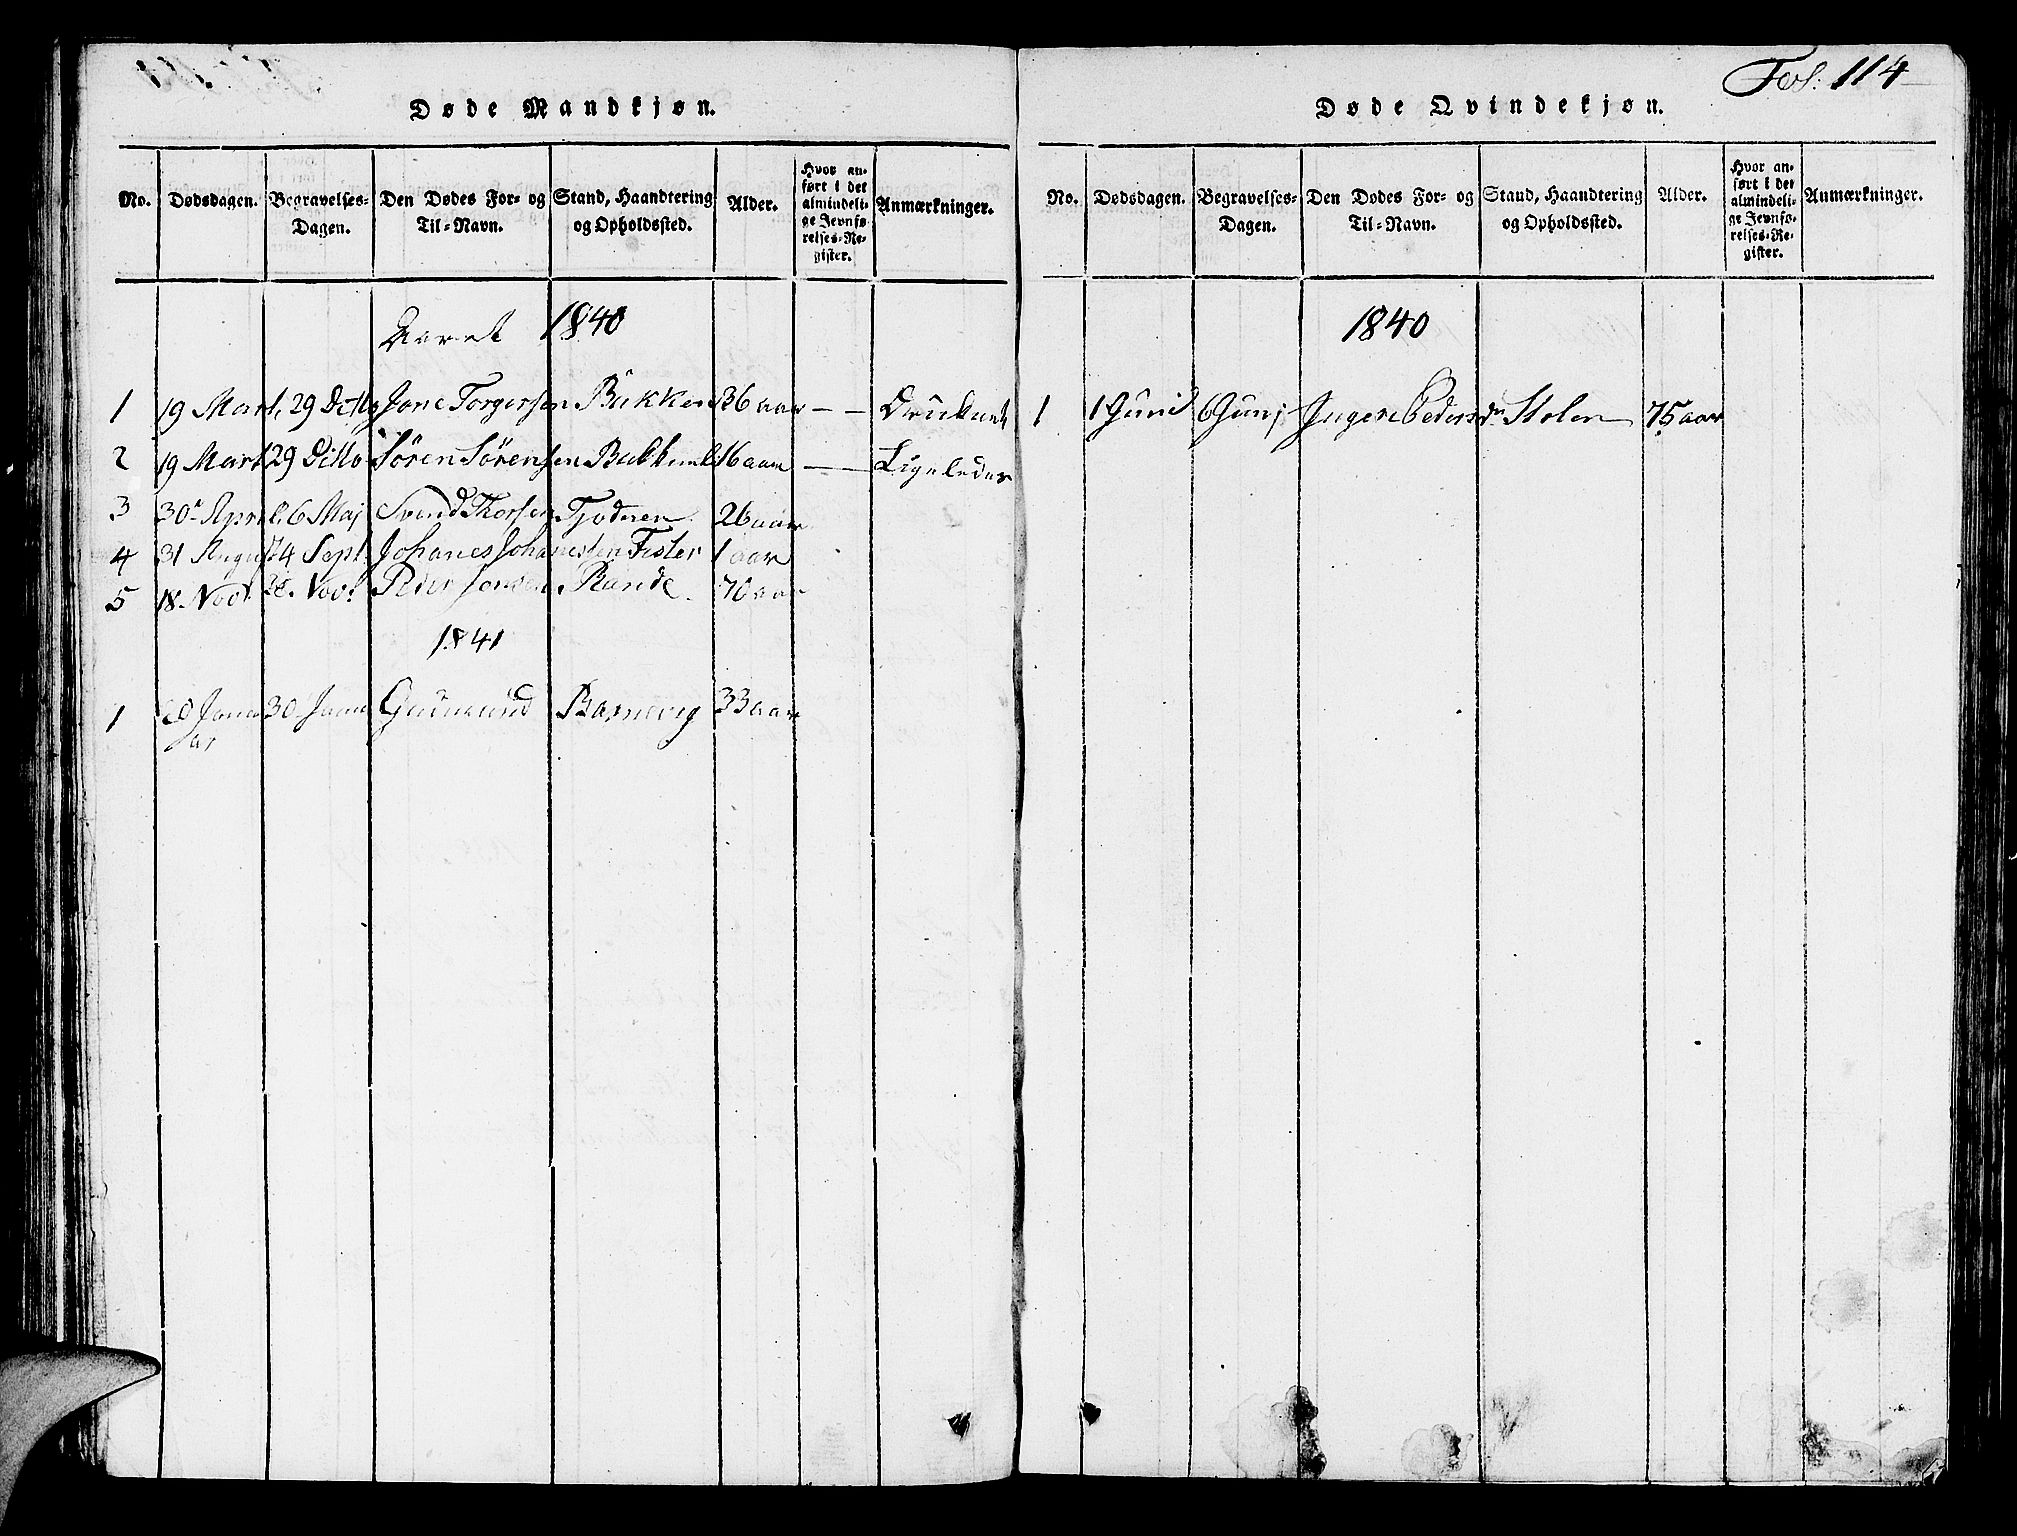 Fol. 114
Døde Mandkjøn.
No. Dødsdagen. Begravelses-Dagen. Den Dødes For- og Til-Navn. Stand, Haandtering og Opholdssted. Alder. Hvor anført i det almindelige Jevnførelses-Register. Anmærkninger.
Aaret 1840
1 19 Mart. 29 Ditto Jone Torgersen Bukken 36 aar — — Druknet
2 19 Mart 29 Ditto Søren Sørensen 16 aar — — Ligeledes
3 30 April 6 Maj Svend Thorsen 26 aar
4 31 August 4 Sept. Johanes Johanesen Fister 1 aar
5 18 Novb. Novb. Peder Jonsen Rande 70 aar
1841
1 20 Januar 30 Janu Gudmund Barnevig 33 aar
Døde Qvindekjøn.
No. Dødsdagen. Begravelses-Dagen. Den Dødes For- og Til-Navn. Stand, Haandtering og Opholdssted. Alder. Hvor anført i det almindelige Jevnførelses-Register. Anmærkninger.
1840
1 1 Juni 6 Junj Stolen 75 aar